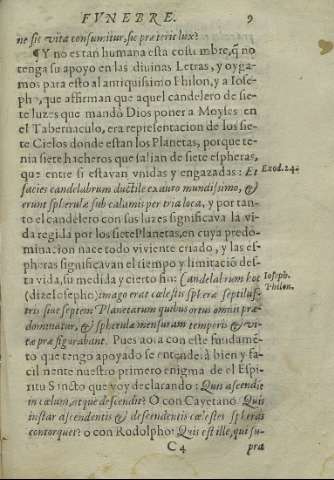 FVNEBRE. 9
ne sic vita consumitur, sic præterit lux?
¶Y no es tan humana esta costumbre, q̃ no
tenga su apoyo en las diuinas Letras, y oyga-
mos para esto al antiquissimo Philon, y a Iose-
pho, que affirman que aquel candelero de sie-
te luzes que mandò Dios poner a Moyses en
el Tabernaculo, era representacion de los sie-
te Cielos donde estan los Planetas, porque te-
nia siete hacheros que salian de siete espheras,
que entre si estauan vnidas y engazadas: Et
Exod. 24.
facies candelabrum ductile ex auro mundissimo, &
erunt sphærulæ sub calamis per tria loca, y por tan-
to el candelero con sus luzes significaua la vi-
da regida por los siete Planetas, en cuya predo-
minacion nace todo viuiente criado, y las es-
pheras significauan el tiempo y limitaciō des-
ta vida, su medida y cierto fin: Candelabrum hoc
Ioseph.
Philon.
(dize Iosepho) imago erat cælestis spheræ septilus-
tris siue septem Planetarum quibus ortus omnis præ-
dominatur, & sphærulæ mensuram temporis & vi-
tæ præfigurabant. Pues aora con este fundamē-
to que tengo apoyado se entenderà bien y fa-
cilmente nuestro primero enigma de el Espi-
ritu Sancto que voy declarando: Quis ascendit
in cœlum, atque descendit? O con Cayetano Quis
instar ascendentis & descendentis cœlestes spheras
contorquet? o con Rodolpho: Quis est ille, qui su-
C 4 pra